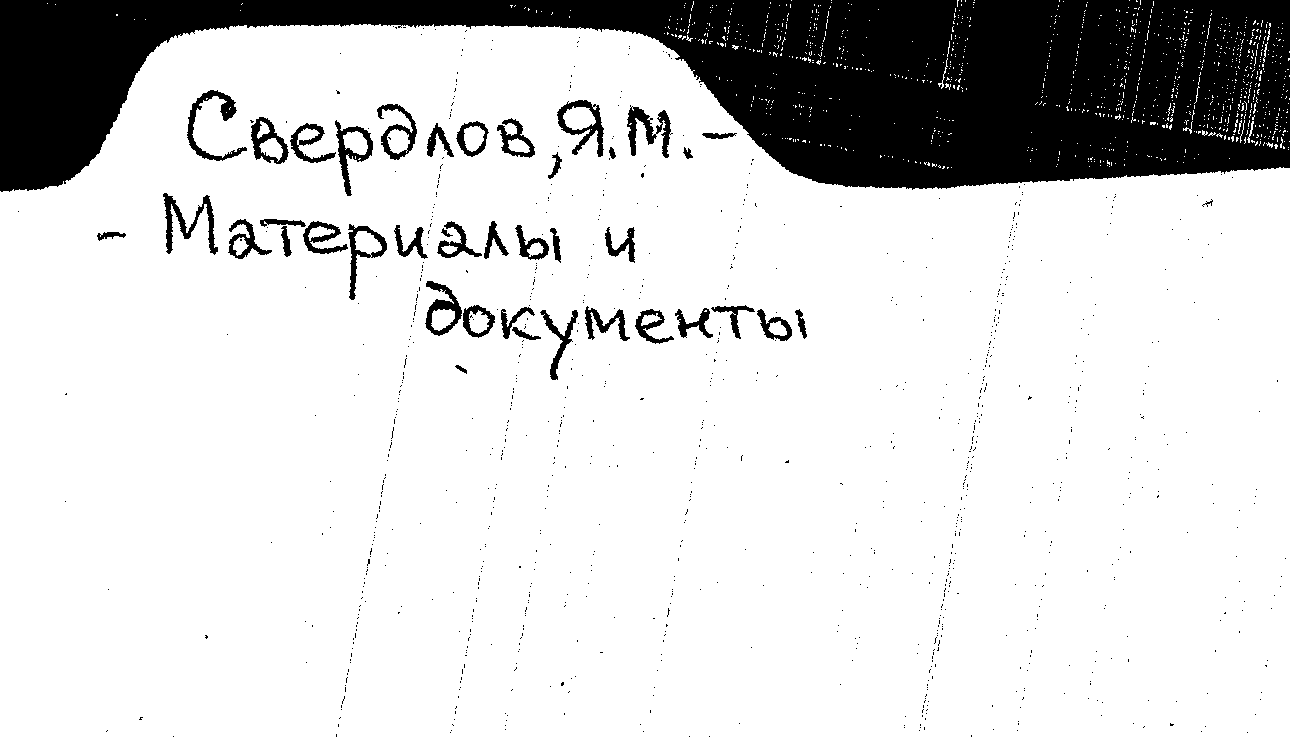 Свердлов, Я.М. -
- Материалы и
документы